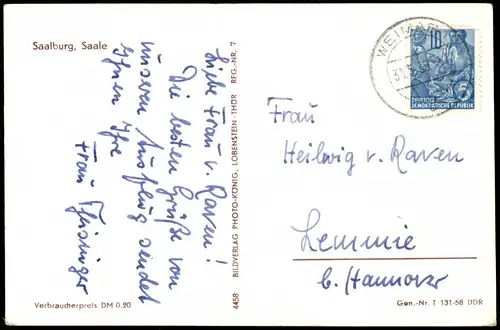 Saalburg, Saale
Liebe Frau v. Raven!
Die besten Grüße von
unserem Ausflug sendet
Ihnen Ihre
Frau
Verbraucherpreis DM 0.20
4458 BILDVERLAG PHOTO-KÖNIG, LOBENSTEIN-THÜR REG.-NR. 7
WEIMAR
10
DEUTSCHE
DEMOKRATISCHE REPUBLIK
Frau
Heilwig v. Raven
Lemmie
b./Hannover
Gen.-Nr. T 131-58 DDR